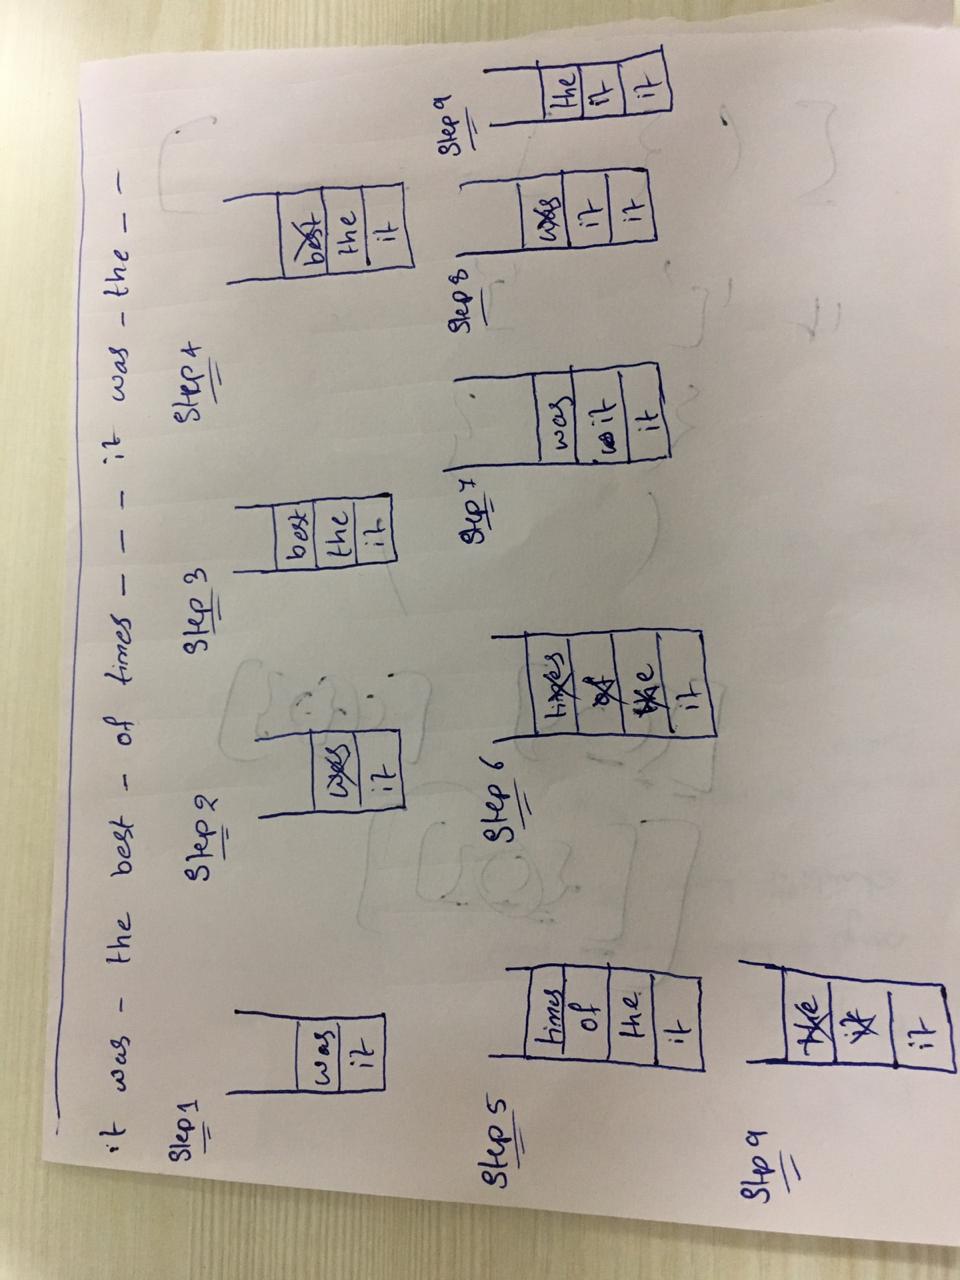 it was - the best - of times - - - it was - the - -
Step 1
was
it
Step 2
was
it
Step 3
best
the
it
Step 4
best
the
it
Step 5
times
of
the
it
Step 6
times
of
the
it
Step 7
was
it
it
Step 8
was
it
it
Step 9
the
it
it
Step 9
the
it
it